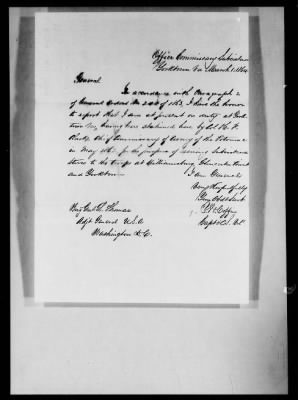 Office Commissary Subsistence
Yorktown Va March 1. 1864
General
In accordance with Paragraph 2
of General Orders No. of 1863, I have the honor
to report that I am at present on duty at York-
town Va, having been stationed here by Col. H. F.
Clarke Chief Commissary of Army of the Potomac
in May 1862 for the purpose of issuing Subsistence
stores to the troops at Williamsburg, Gloucester Point
and Yorktown
I am General
Very Respectfully
Your Obt Servt
Capt &
Brig Genl L. Thomas
Adjt General U.S.A.
Washington D.C.